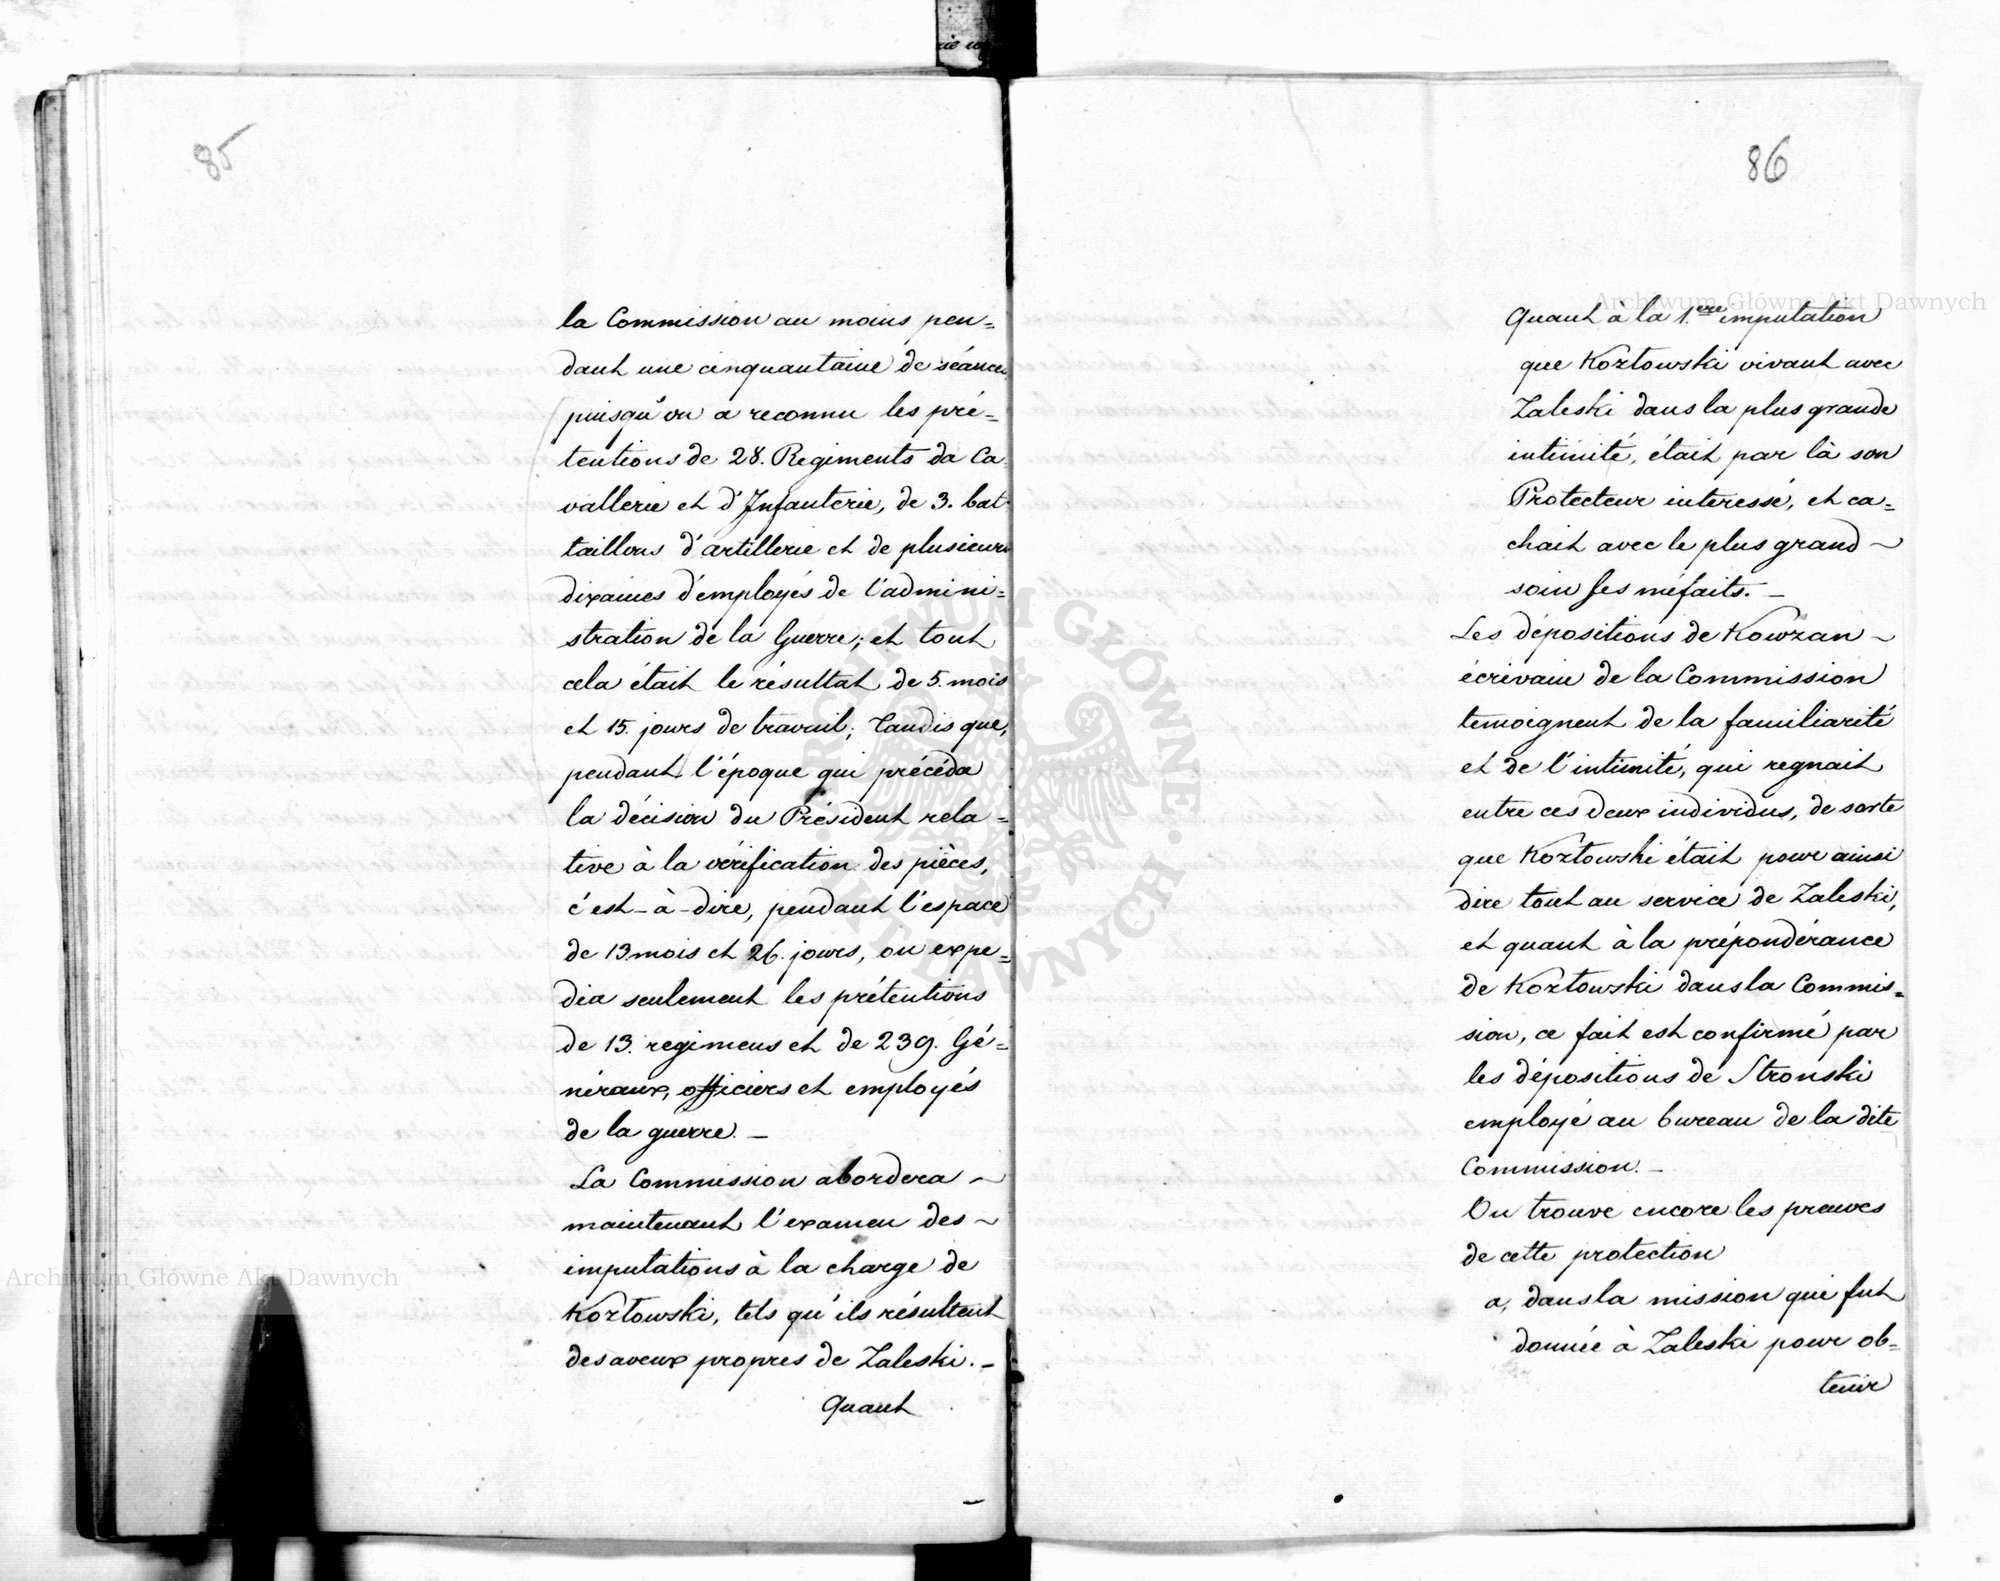 85
la Commission au moins pen=
dant une cinquantaine de séances
puisqu'on a reconnu les pré=
tentions de 28. Regiments da Ca
vallerie et d'Infanterie, de 3. bat
taillons d'artillerie et de plusieurs
dixaines d'employés de l'admini=
stration de la Guerre; et tout
cela était le résultat de 5. mois
et 15. jours de travail; tandis que,
pendant l'époque qui précéda
la décision du Président rela=
tive à la vérification des pièces,
c'est-à-dire, pendant l'espace
de 13 mois et 26. jours, on expe=
dia seulement les prétentions
de 13. regimens et de 239. Gé=
néraux, officiers et employés
de la guerre. –
La Commission abordera ~
maintenant l'examen des ~
imputations à la charge de
Kozłowski, tels qu'ils résultent
des aveux propres de Zaleski. –
Quant
86
Quant à la 1.ere imputation
que Kozłowski vivant avec
Zaleski dans la plus grande
intimité, était par là son
Protecteur interessé, et ca=
chait avec le plus grand ~
soin ses méfaits. –
Les dépositions de Kowzan ~
écrivain de la Commission
temoignent de la familiarité
et de l'intimité, qui regnait
entre ces deux individus, de sorte
que Kozłowski était pour ainsi
dire tout au service de Zaleski,
et quant à la prépondérance
de Kozłowski dans la Commis=
sion, ce fait est confirmé par
les dépositions de Stronski
employé au bureau de la dite
Commission. –
On trouve encore les preuves
de cette protection
a, dans la mission qui fut
donnée à Zaleski pour ob=
tenir
Archiwum Główne Akt Dawnych
Archiwum Główne Akt Dawnych
ARCHIWUM GŁÓWNE AKT DAWNYCH